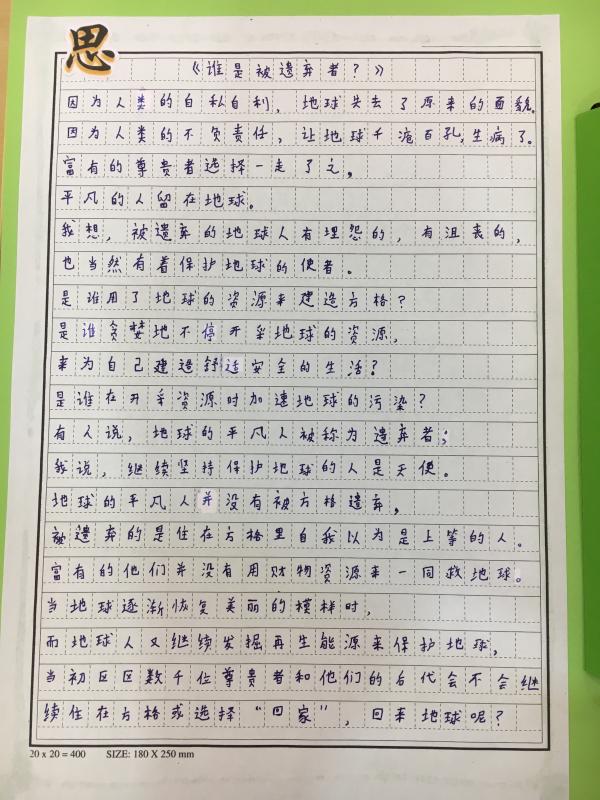 思
《谁是被遗弃者？》
因为人类的自私自利，地球失去了原来的面貌。
因为人类的不负责任，让地球千疮百孔，生病了。
富有的尊贵者选择一走了之，
平凡的人留在地球。
我想，被遗弃的地球人有埋怨的，有沮丧的，
也当然有着保护地球的使者。
是谁用了地球的资源来建造方格？
是谁贪婪地不停开采地球的资源，
来为自己建造舒适安全的生活？
是谁在开采资源时加速地球的污染？
有人说，地球的平凡人被称为遗弃者；
我说，继续坚持保护地球的人是天使。
地球的平凡人并没有被方格遗弃，
被遗弃的是住在方格里自我以为是上等的人。
富有的他们并没有用财物资源来一同救地球。
当地球逐渐恢复美丽的模样时，
而地球人又继续发掘再生能源来保护地球，
当初区区数千位尊贵者和他们的后代会不会继
续住在方格或选择“回家”，回来地球呢？
20 x 20 = 400 SIZE: 180 X 250 mm